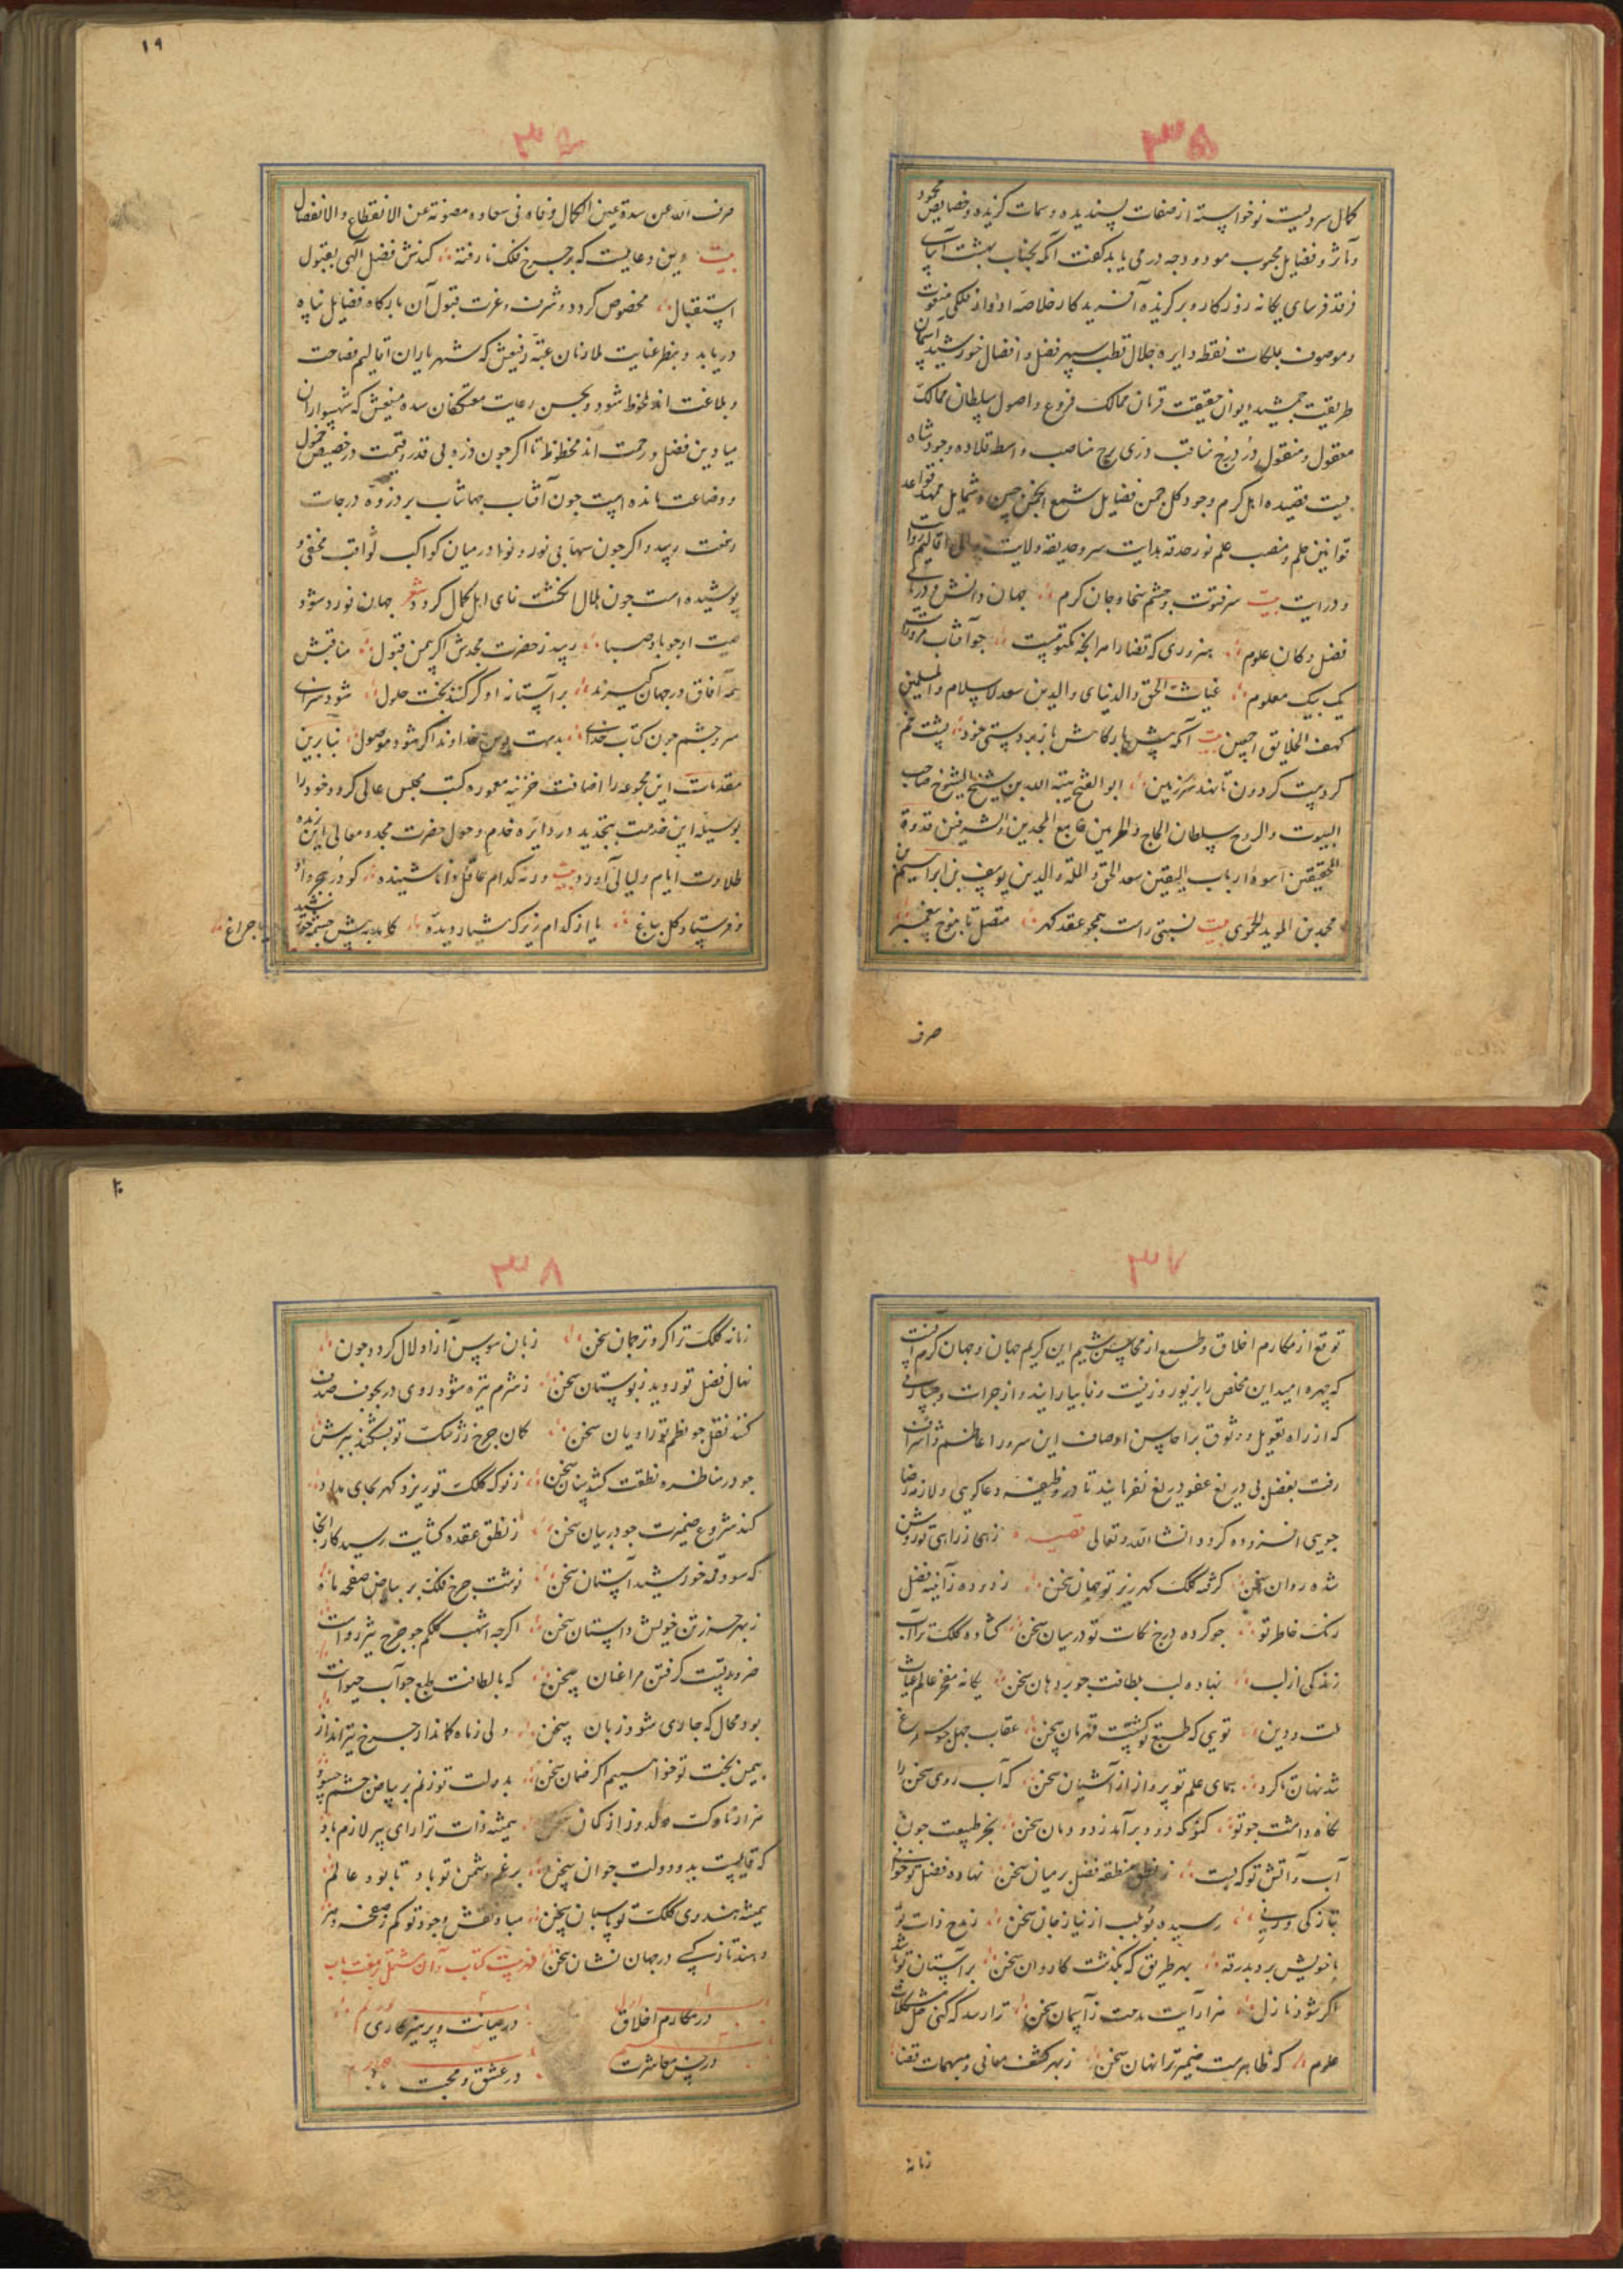 ۳۵
کمال سروریست نوخواسته از صفات پسندیده و سمات گزیده و خصایص محمود
و مآثر و فضایل محبوب مودود وجه در می یابد گفت آنکه بجناب بهشت
فرقد فرسای یگانه روزگار و برگزیده آفریدگار خلاصه ادوار فلکی منعوت
و موصوف بملکات نقطه دایره جلال قطب سپهر فضل و افضال خورشید آسمان
طریقت جمشید ایوان حقیقت قهرمان ممالک فروع و اصول سلطان ممالک
معقول و منقول در درج مناقب دری برج مناصب واسطه قلاده وجود شاه
بیت قصیده اهل کرم وجود کل چمن فضایل شمع انجمن شمایل ممهد قواعد
قوانین حلم و منصب علم نور حدقه هدایت سرو حدیقه ولایت اقالیم
و درایت بیت سر فتوت و چشم سخا و جان کرم جهان دانش و دریای
فضل و کان علوم هنروری که قضا را هر آنچه مکتوبست چو آفتاب
یک بیک معلوم غیاث الحق والدنیا والدین سعد الاسلام والمسلمین
کهف الخلایق اجمعین بیت آنکه پیش بارگاهش باز بر دستی خود پشت خم
کردست کردون تا نهد سر بر زمین ابو الفتح هبة الله بن شیخ الشیوخ صاحب
البیوت والروح سلطان الحاج والحرمین جامع المجدین والشرفین قدوة
المحققین اسوة ارباب الیقین سعد الحق والملة والدین یوسف بن ابراهیم بن
محمد بن الموید الحموی بیت نسبتی راست همچو عقد گهر متصل تا بنوح پیغمبر
صرف
۱۹
۳۶
صرف الله عن سدة عین الکمال وفاه فی سعاده مصونة عن الانقطاع والانفصال
بیت وین دعاییست که بر چرخ فلک نارفته کندش فضل الهی بقبول
استقبال مخصوص گردد و شرف و عزت قبول آن بارگاه فضایل پناه
دریابد و بنظر عنایت ملازمان عتبه رفیعش که شهریاران اقالیم فصاحت
و بلاغت اند ملحوظ شود و بحسن رعایت معتکفان سده منیعش که شهسواران
میادین فضل و رحمت اند محظوظ تا اگر چون ذره بی قدر و قیمت در حضیض خمول
و وضاعت مانده است چون آفتاب جهانتاب بر ذروه درجات
رفعت رسد و اگر چون سها بی نور و نوا در میان کواکب ثواقب مخفی و
پوشیده است چون هلال انگشت نمای اهل کمال گردد شعر جهان نورد شود
صیت او چو باد صبا رسد ز حضرت مجدش اگر بمن قبول مناقبش
همه آفاق در جهان گیرند بر آستانه او گر کند بخت حلول شود سزای
سر و چشم چون کتاب خدای بدست خداوند اگر شود موصول بنابرین
مقدمات این مجموعه را اضافت خزینه معموره کتب مجلس عالی کرد و خود را
بوسیله این خدمت بتجدید در دایره خدم و خول حضرت مجد و معالی
طلاوت ایام و لیالی آورد بیت ورنه کدام عاقل و دانا شنیده کو در ببحر داد
و فرستاد گل بباغ یا از کدام زیرک هشیار دیده کامد به پیش چشمه خورشید با چراغ
۳۷
توقع از مکارم اخلاق و طمع از محاسن شیم این کریم جهان و جهان کرم آنست
که چهره امید این مخلص را بزیور و زینت وفا بیارایند و از جرات و جسارتی
که از راه تعویل و وثوق بر احاسن اوصاف این سرور اعاظم و اشراف
رفت بفضل بی دریغ عفو دریغ نفرمایند تا در وظیفه دعاگویی و لازمه رضا
جویی افزوده گردد انشاالله تعالی قصیده زهی ز رای تو روشن
شده روان سخن گرفته کلک گهرریز تو جهان سخن زدوده ز آینه فضل
زنگ خاطر تو چو کرده درج نکات تو در میان سخن گشاده کلک ترا آب
زندگی از لب نهاده لب بلطافت چو بر دهان سخن یگانه مفخر عالم غیاث
ملت و دین تویی که طبع تو گشتست قهرمان سخن عقاب جهل چو سیمرغ
شد نهان تا کرد همای علم تو پرواز از آشیان سخن که آب روی سخن را
نگاه داشت چو تو کنو که دود برآمد ز دودمان سخن بجز طبیعت چون
آب و آتش تو که بست ز نطق منطقه فضل بر میان سخن نهاده فضل تو خوانی
بتازگی و رسیده بر لب از نیاز جان سخن ز مدح ذات تو
با خویش برد بدرقه بهر طریق که بگذشت کاروان سخن بر آستان تو شد
اگر شود نازل هزار آیت مدحت ز آسمان سخن ترا رسد که کنی حل مشکلات
علوم که ظاهرست ضمیر ترا نهان سخن ز بهر کشف معانی و مبهمات قضا
زمانه
۲۰
۳۸
زمانه کلک ترا کرد ترجمان سخن زبان سوسن آزاد لال گردد چون
نهال فضل تو روید ز بوستان سخن ز شرم تیره شود روی در بجوف صدف
کنند نقل چو نظم تو راویان سخن کمان چرخ ز رشک تو بشکند تیرش
چو در مناظره نطقت کشد سنان سخن ز نوک کلک تو ریزد گهر بجای مداد
کند شروع ضمیرت چو در بیان سخن ز نطق عقده گشایت رسید کار آنجا
که سود فرق خورشید آستان سخن نوشت چرخ فلک بر بیاض صفحه ماه
ز بهر حرز تن خویش داستان سخن اگرچه اشهب کلکم چو چرخ تیزروست
ضرورتیست گرفتن مرا عنان سخن که با لطافت طبع چو آب حیوانت
بود محال که جاری شود زبان سخن ولی زمانه کماندار چرخ تیرانداز
بیمن بخت تو خواهیم اگر ضمان سخن بدولت تو زنم بر بیاض چشم حسود
هزار ناوک دلدوز از کمان سخن همیشه ذات ترا رای پیر لازم باد
که قایمست بدو دولت جوان سخن برغم دشمن تو باد تا بود عالم
همیشه هندوی کلک تو پاسبان سخن مباد نقش وجود تو کم ز صفحه دهر
دهند تا ز پی در جهان نشان سخن فهرست کتاب و آن مشتمل بر هفت باب
در مکارم اخلاق
در صیانت و پرهیزگاری
در حسن معاشرت
در عشق و محبت